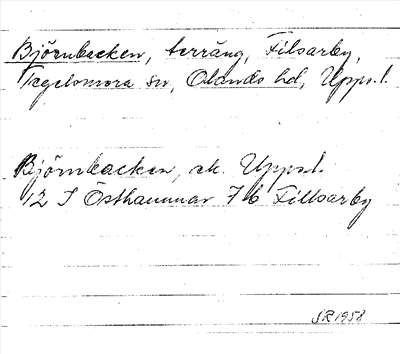 Björnbacken, terräng, Filsarby,
Tegelsmora sn, Olands hd, Upps.l.
Björnbacken, ek. Upps.l.
12 I Östhammar 7 b Fillsarby
SR 1958